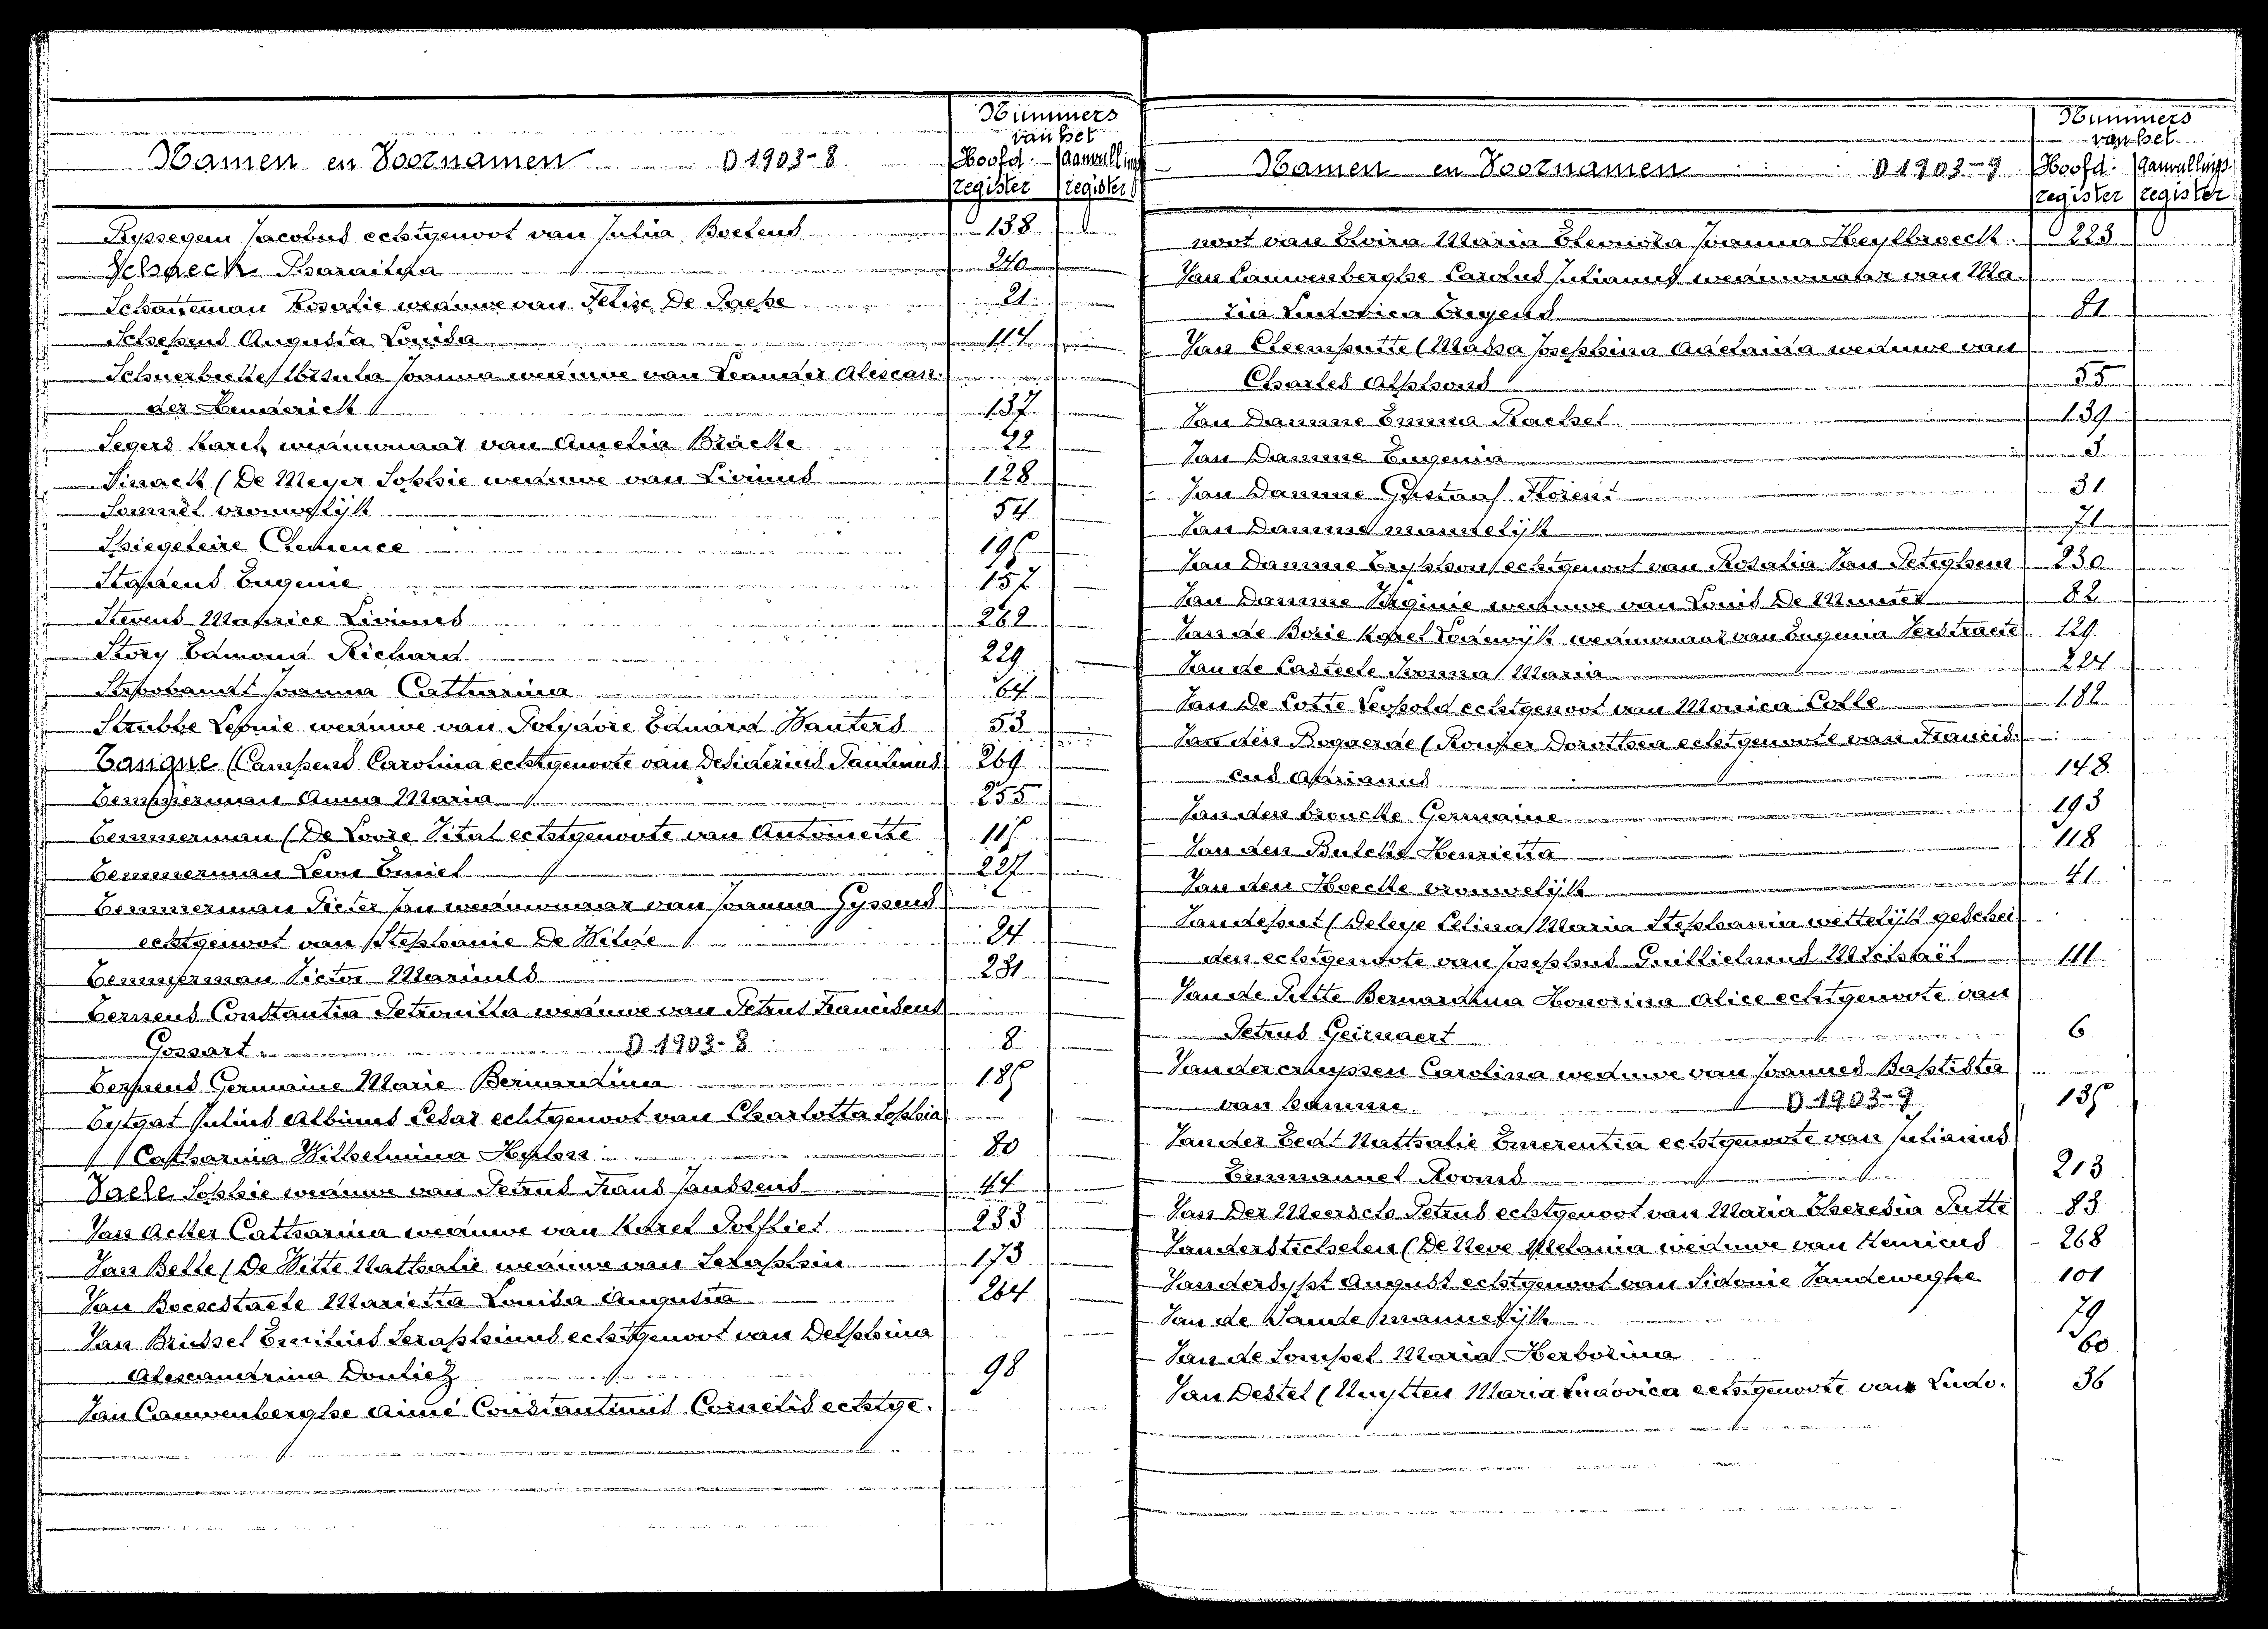 Nummers
van het
Namen en Voornamen D 1903-8 Hoofd- Aanvullings
register register
Ryssegem Jacobus echtgenoot van Julia Boelens 138
Pharaïlda 240
Schatteman Rosalie weduwe van Felix De Paepe 21
Schepens Augusta Louisa 114
Ursula Joanna weduwe van Leander Alexan-
der 137
Segers Karel weduwnaar van Amelia Bracke 92
Sinaelt (De Meyer Sophie weduwe van Livinus 128
vrouwelijk 54
Spiegeleire Clemence 196
Stappens Eugenie 157
Stevens Maurice Livinus 262
Story Edmond Richard 229
Strobandt Joanna Catharina 64
Strubbe Leonie weduwe van Polydore Eduard Wauters 53
Tanque (Campens Carolina echtgenoote van Desiderius Paulinus 269
Temmerman Anna Maria 255
Temmerman (De Loore Vital echtgenoote van Antoinette 115
Temmerman Leon Emiel 227
Temmerman Pieter Jan weduwnaar van Joanna Gyssens
echtgenoot van Stephanie De Wilde 24
Temmerman Victor Marinus 231
Terneus Constantia Petronilla weduwe van Petrus Franciscus
Gossart D 1903-8 8
Germaine Marie Bernardina 185
Tytgat Julius Albinus Cesar echtgenoot van Charlotta Sophia
Catharina Wilhelmina 80
Vaele Sophie weduwe van Petrus Frans Janssens 44
Van Acker Catharina weduwe van Karel Polfliet 233
Van Belle (De Witte Nathalie weduwe van Seraphin 173
Van Bocxstaele Marietta Louisa Augusta 264
Van Brussel Emilius Seraphinus echtgenoot van Delphina
Alexandrina Douliez 98
Van Cauwenberghe Aimé Constantinus Cornelis echtge-
Nummers
van het
Namen en Voornamen D 1903-9 Hoofd- Aanvullings
register register
noot van Elvira Maria Eleonora Joanna Heylbroeck 223
Van Cauwenberghe Carolus Julianus weduwnaar van Ma-
ria Ludovica Buyens 81
Van Cleemputte (Massa Josephina Adelaida weduwe van
Charles Alphons 55
Van Damme Emma Rachel 139
Van Damme Eugenia 3
Van Damme Gustaaf Florent 31
Van Damme mannelijk 71
Van Damme Tryphon echtgenoot van Rosalia Van Peteghem 230
Van Damme Virginie weduwe van Louis De Muner 82
Van de Borie Karel Lodewijk weduwnaar van Eugenia Verstraete 129
Van de Casteele Ivonna Maria 224
Van De Cotte Leopold echtgenoot van Monica Colle 182
Van den Bogaerde (Rouser Dorothea echtgenoote van Francis-
cus Adrianus 148
Van den broucke Germaine 193
Van den Bulcke Henrietta 118
Van den Hoecke vrouwelijk 41
Vandeput (Deleye Celina Maria Stephania wettelijk geschei-
den echtgenoote van Josephus Guillielmus Michaël 111
Van de Putte Bernardina Honorina Alice echtgenoote van
Petrus Geirnaert 6
Vandercruyssen Carolina weduwe van Joannes Baptista
van hamme D 1903-9 135
Van der Eecht Nathalie Emerentia echtgenoote van Julianus
Emmanuel Rooms 213
Van Der Meersch Petrus echtgenoot van Maria Theresia Putte 83
Vanderstichelen (De Neve Melania weduwe van Henricus 268
Vandersypt August echtgenoot van Sidonie Vandeweghe 101
Van de Sande mannelijk 79
Van de Sompel Maria Herbotina 60
Van Destel (Nuytten Maria Ludovica echtgenoote van Ludo- 36